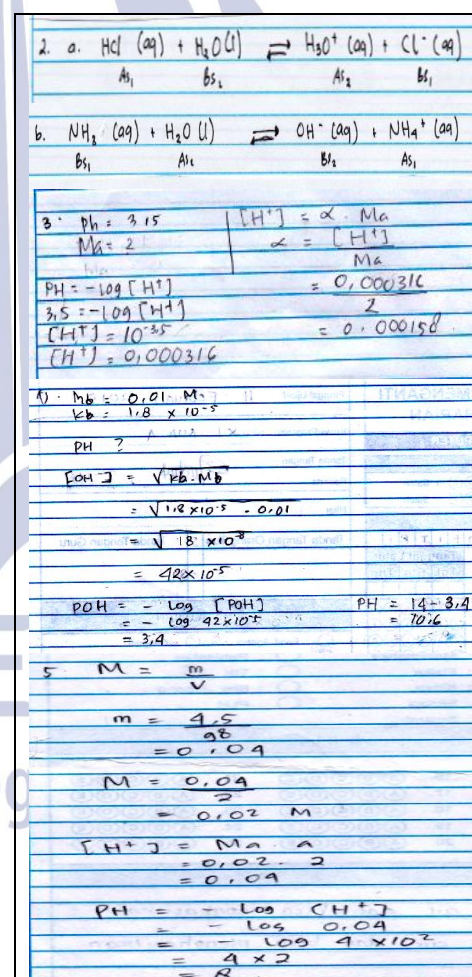 2. a. HCl (aq) + H₂O(l) ⇌ H₃O⁺ (aq) + Cl⁻ (aq)
As₁ Bs₂ As₂ Bs₁
b. NH₃ (aq) + H₂O (l) ⇌ OH⁻ (aq) + NH₄⁺ (aq)
Bs₁ As₂ Bs₂ As₁
3. Ph = 3,5
Ma = 2
PH = -log [H⁺]
3,5 = -log [H⁺]
[H⁺] = 10⁻³·⁵
[H⁺] = 0,000316
[H⁺] = α . Ma
α = [H⁺] / Ma
= 0,000316 / 2
= 0.000158
Mb = 0,01 M
Kb = 1,8 x 10⁻⁵
PH ?
[OH⁻] = √Kb.Mb
= √1,8 x 10⁻⁵ . 0,01
= √18 x 10⁻⁸
= 42 x 10⁻⁵
POH = - Log [POH]
= - Log 42 x 10⁻⁵
= 3,4
PH = 14 - 3,4
= 10,6
5 M = m / V
m = 4,5 / 98
= 0,04
M = 0,04 / 2
= 0,02 M
[H⁺] = Ma . a
= 0,02 . 2
= 0,04
PH = - Log [H⁺]
= - Log 0,04
= - Log 4 x 10²
= 4 x 2
= 8